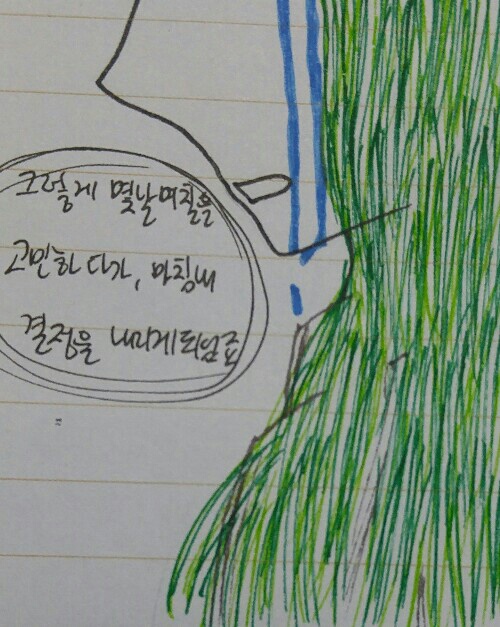 그렇게 몇날며칠을
고민하다가, 마침내
결정을 내리게되었죠